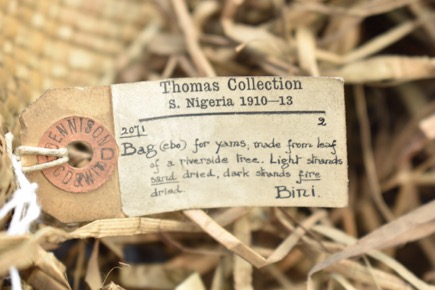 Thomas Collection
S. Nigeria 1910–13
2071 2
Bag (ebo) for yams, made from leaf
of a riverside tree. Light strands
sand dried, dark strands fire
dried. Bini.
DENNISON